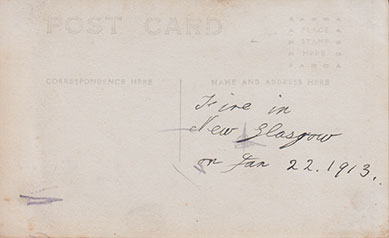 POST CARD
PLACE
STAMP
HERE
CORRESPONDENCE HERE
NAME AND ADDRESS HERE
Fire in
New Glasgow
on Jan 22. 1913.